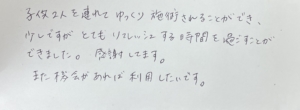 子供2人を連れてゆっくり施術されることができ、
少しですが とてもリフレッシュする時間を過ごすことが
できました。感謝してます。
また機会があれば利用したいです。